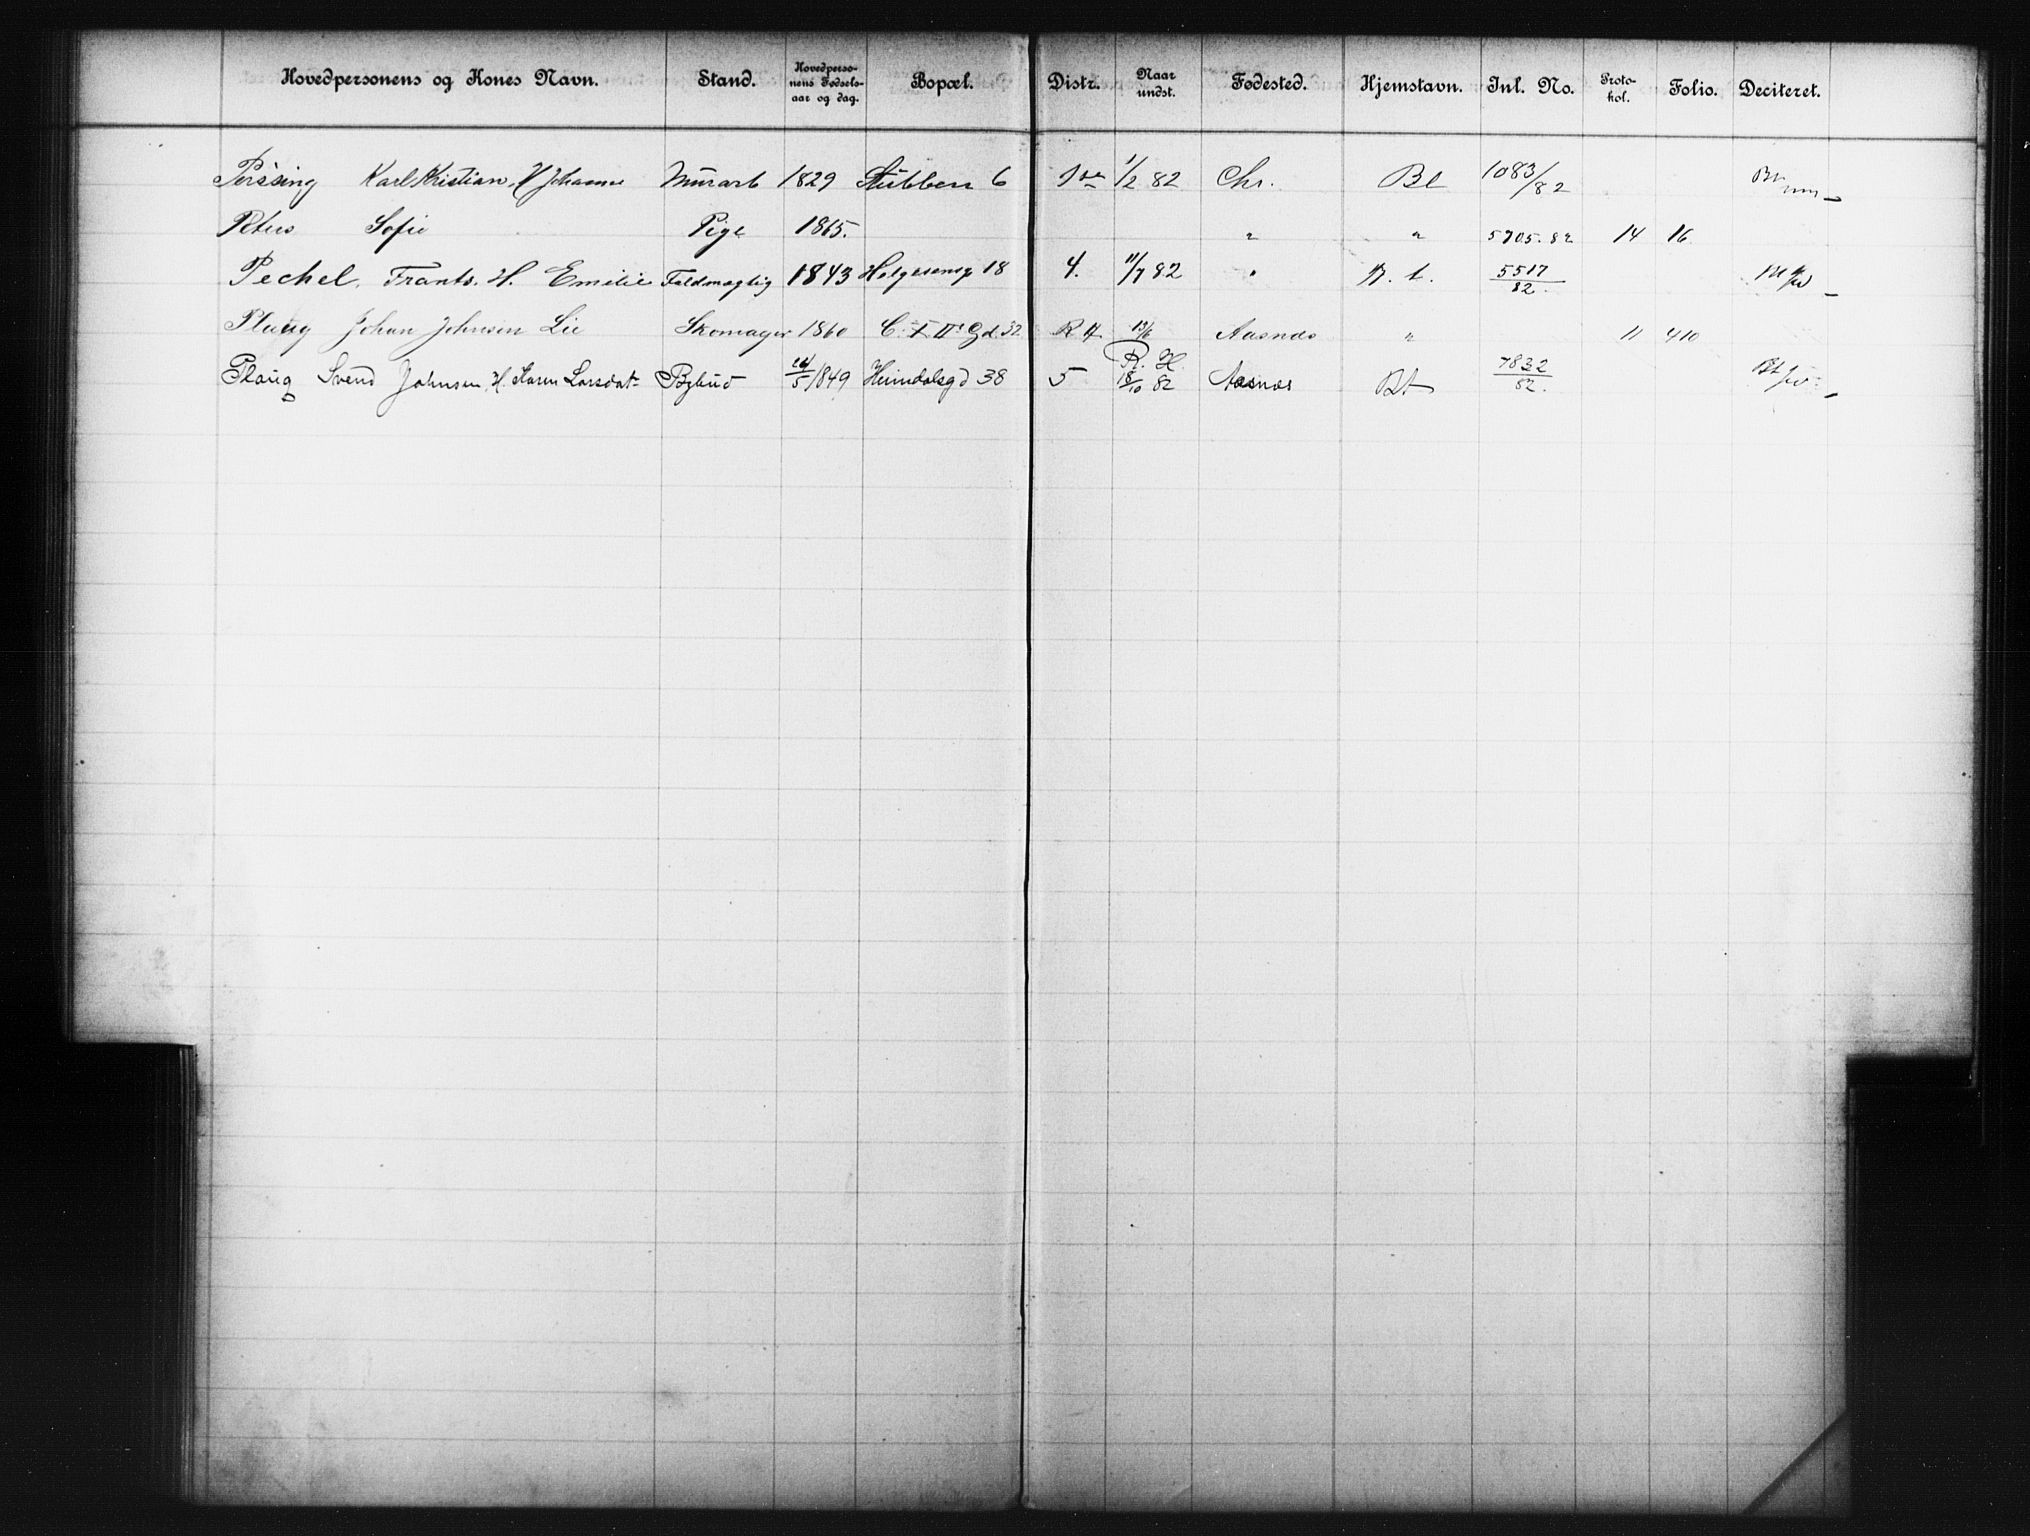 Hovedpersonens og Kones Navn. Stand. Hovedpersonens Fødselsaar og dag. Bopæl. Distr. Naar undst. Fødested. Hjemstavn. Inl. No. Protokol. Folio. Deciteret.
Perssing Karl Kristian, H Johanne Murarb 1829 Stubben 6 1/2 82 Chr. Bl 1083/82
Peters Sofie Pige 1865. " " 5705.82 14 16
Pechel, Frants. H. Emilie Fuldmægtig 1843 Helgesensg 18 4. 11/7 82 " B. t. 5517/82.
Plaug Johan Johnsen Lie Skomager 1860 Gd. 32 R H 13/6 Aasnæs " 11 410
Plaug Svend Johnsen, H. Karen Larsdat- Bybud 14/5 1849 Heimdalsgd 38 5 R. H. 18/10 82 Aasnæs Bt 7832/82.